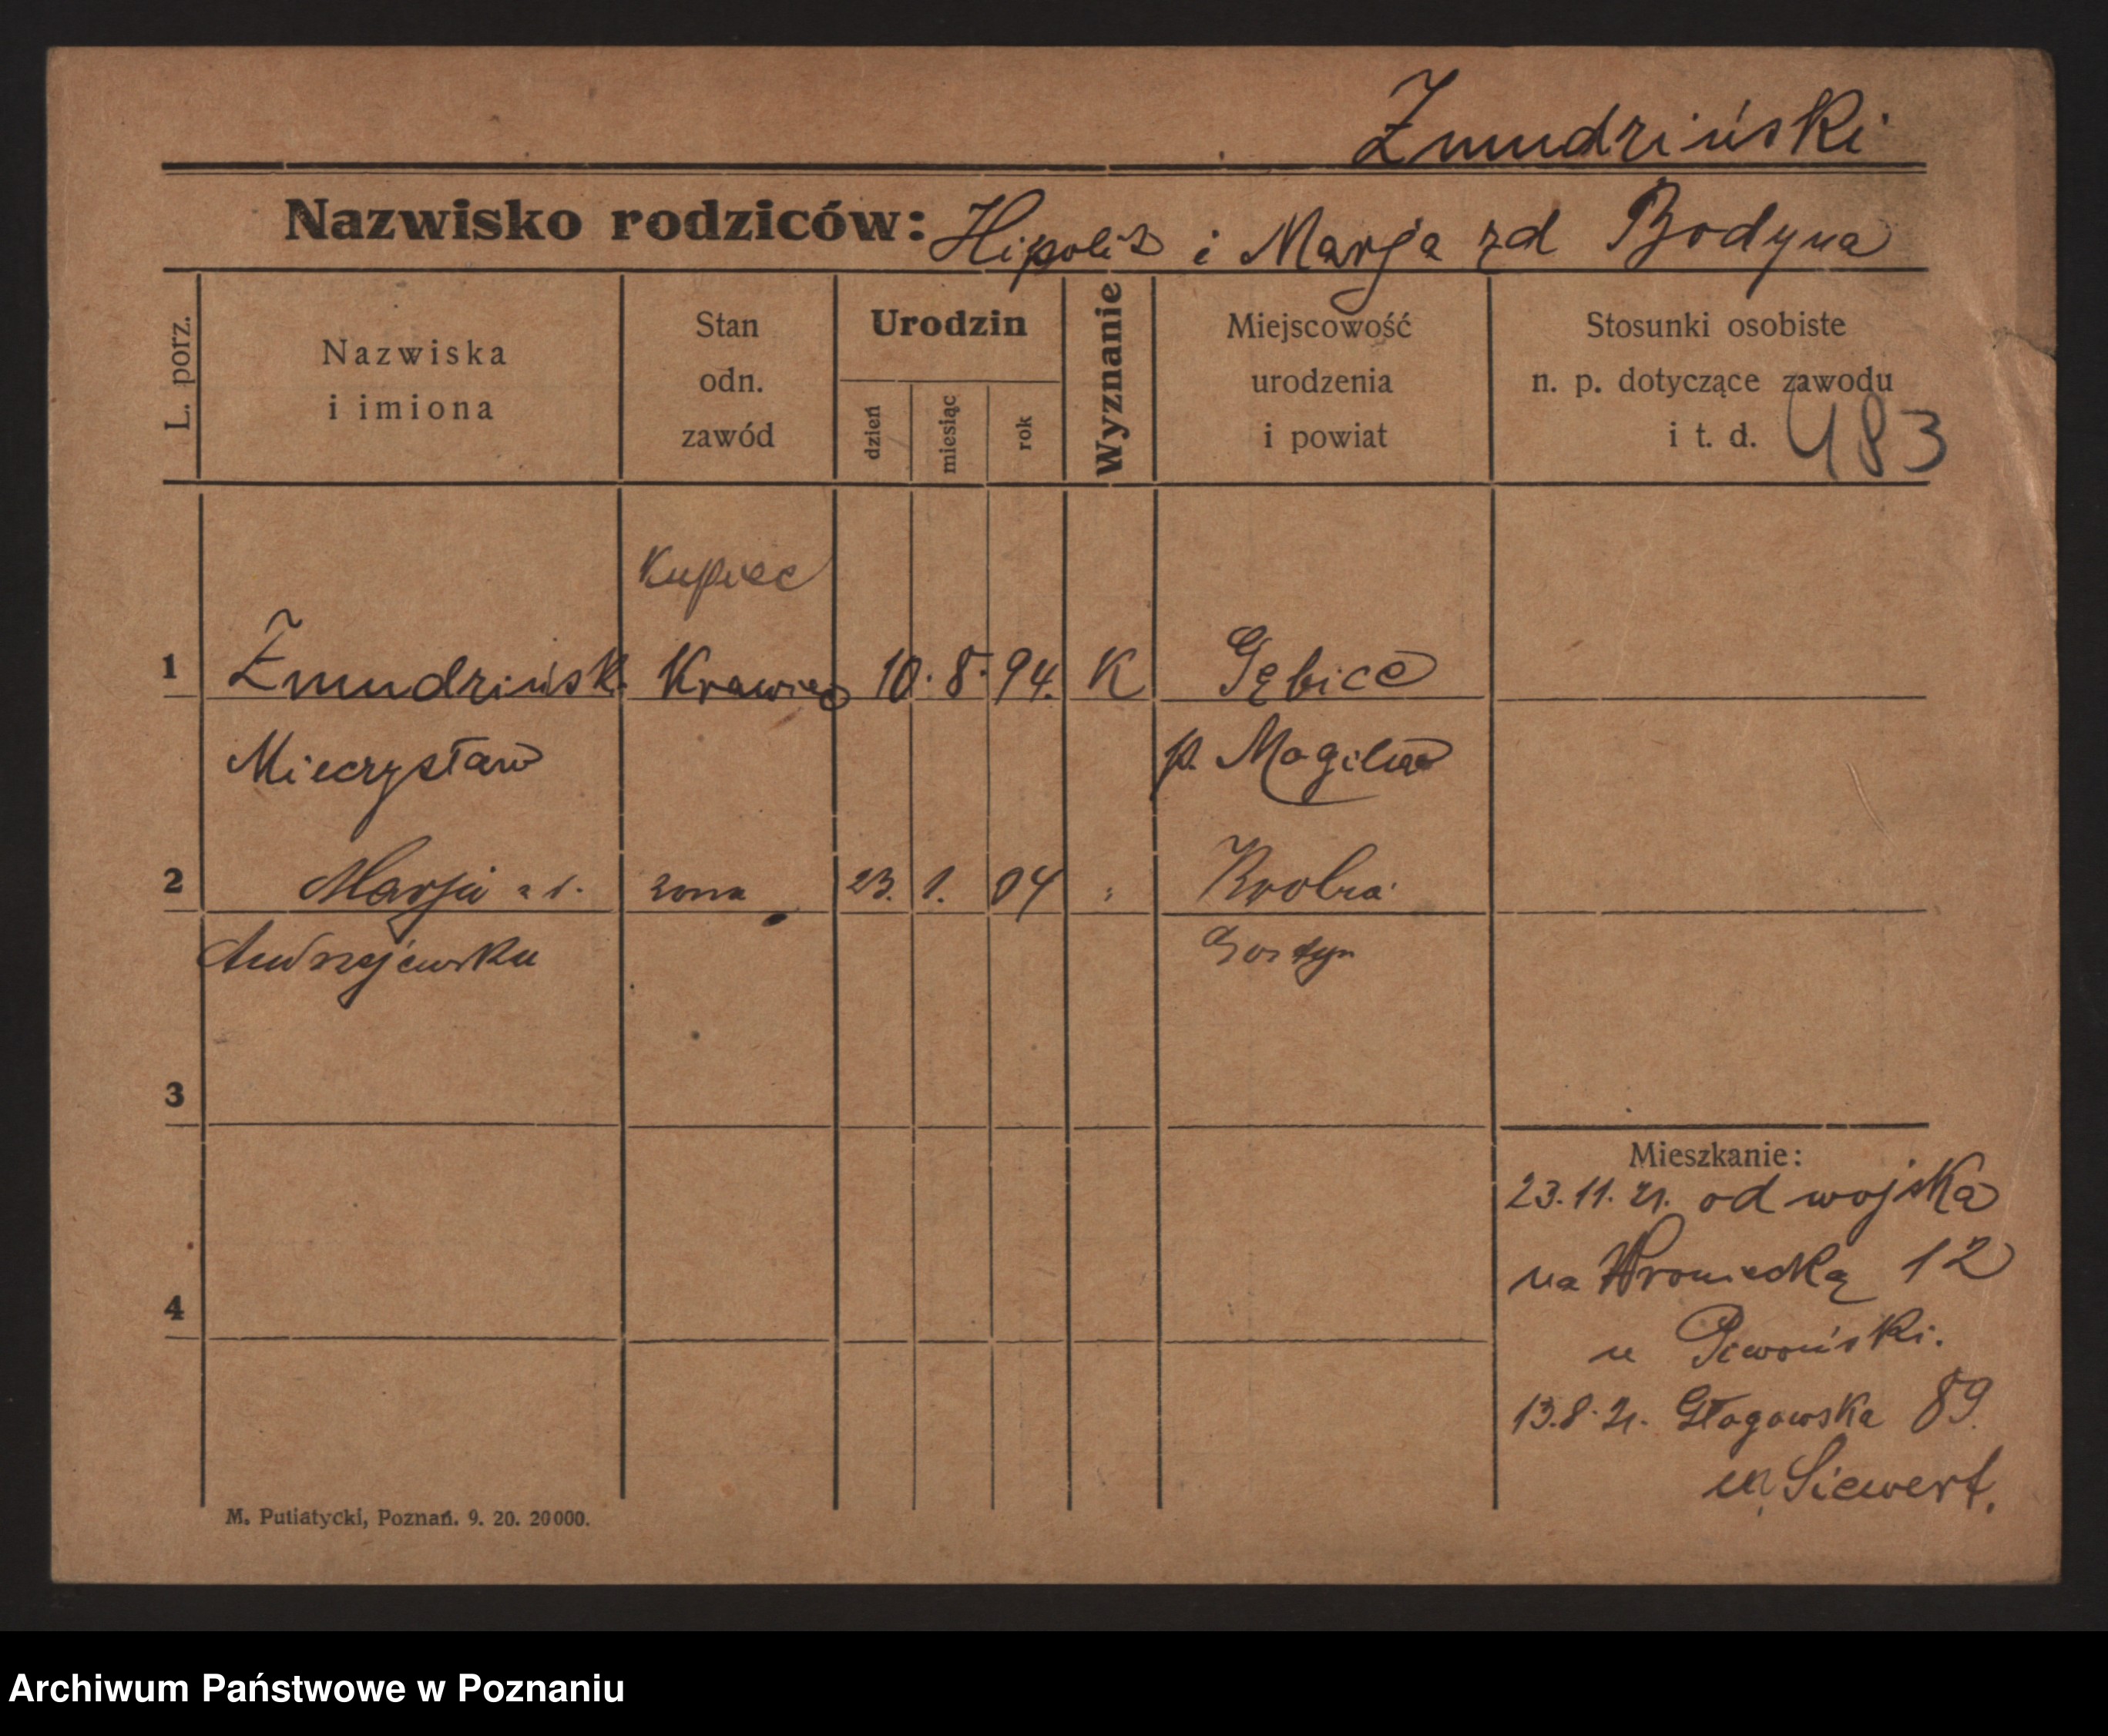 Żmudziński
Nazwisko rodziców: Hipolit i Marja zd Bodyna
L. porz.
Nazwiska
i imiona
Stan
odn.
zawód
Urodzin
dzień
miesiąc
rok
Wyznanie
Miejscowość
urodzenia
i powiat
Stosunki osobiste
n. p. dotyczące zawodu
i t. d. 483
Kupiec
1 Żmudzińsk. Krawiec 10. 8. 94. K Gębice
Mieczysław p. Mogilno
2 Marja z d. żona 23. 1. 04 " Krobia
Andrzejewska Gostyn
3
4
Mieszkanie:
23.11.21. od wojska
na Wroniecką 12
u Piwoński.
13.8.21. Głogowska 89.
u Siewert.
M. Putiatycki, Poznań. 9. 20. 20000.
Archiwum Państwowe w Poznaniu